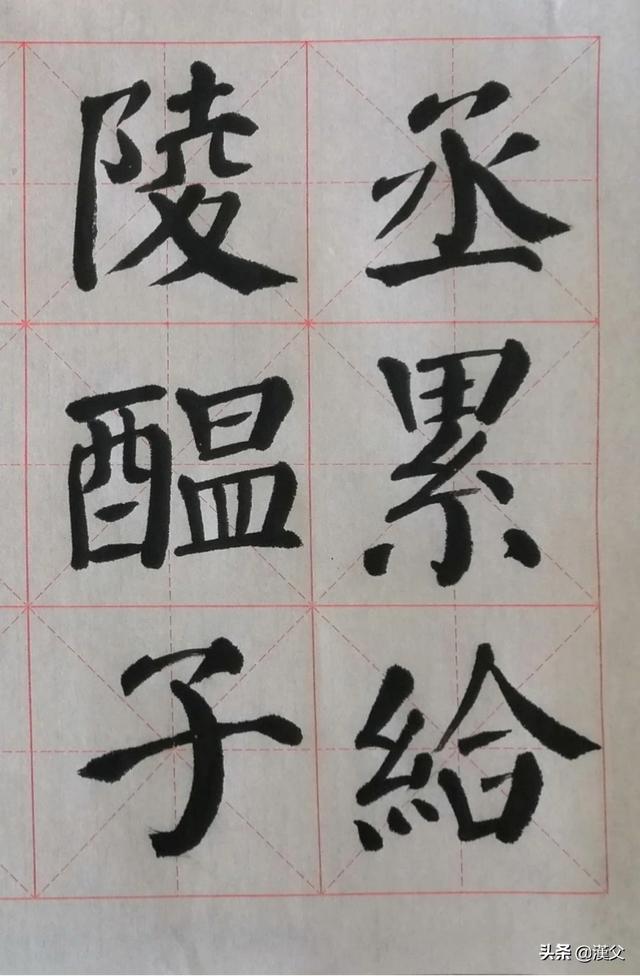 丞累給
陵醖子
头条 @漢父